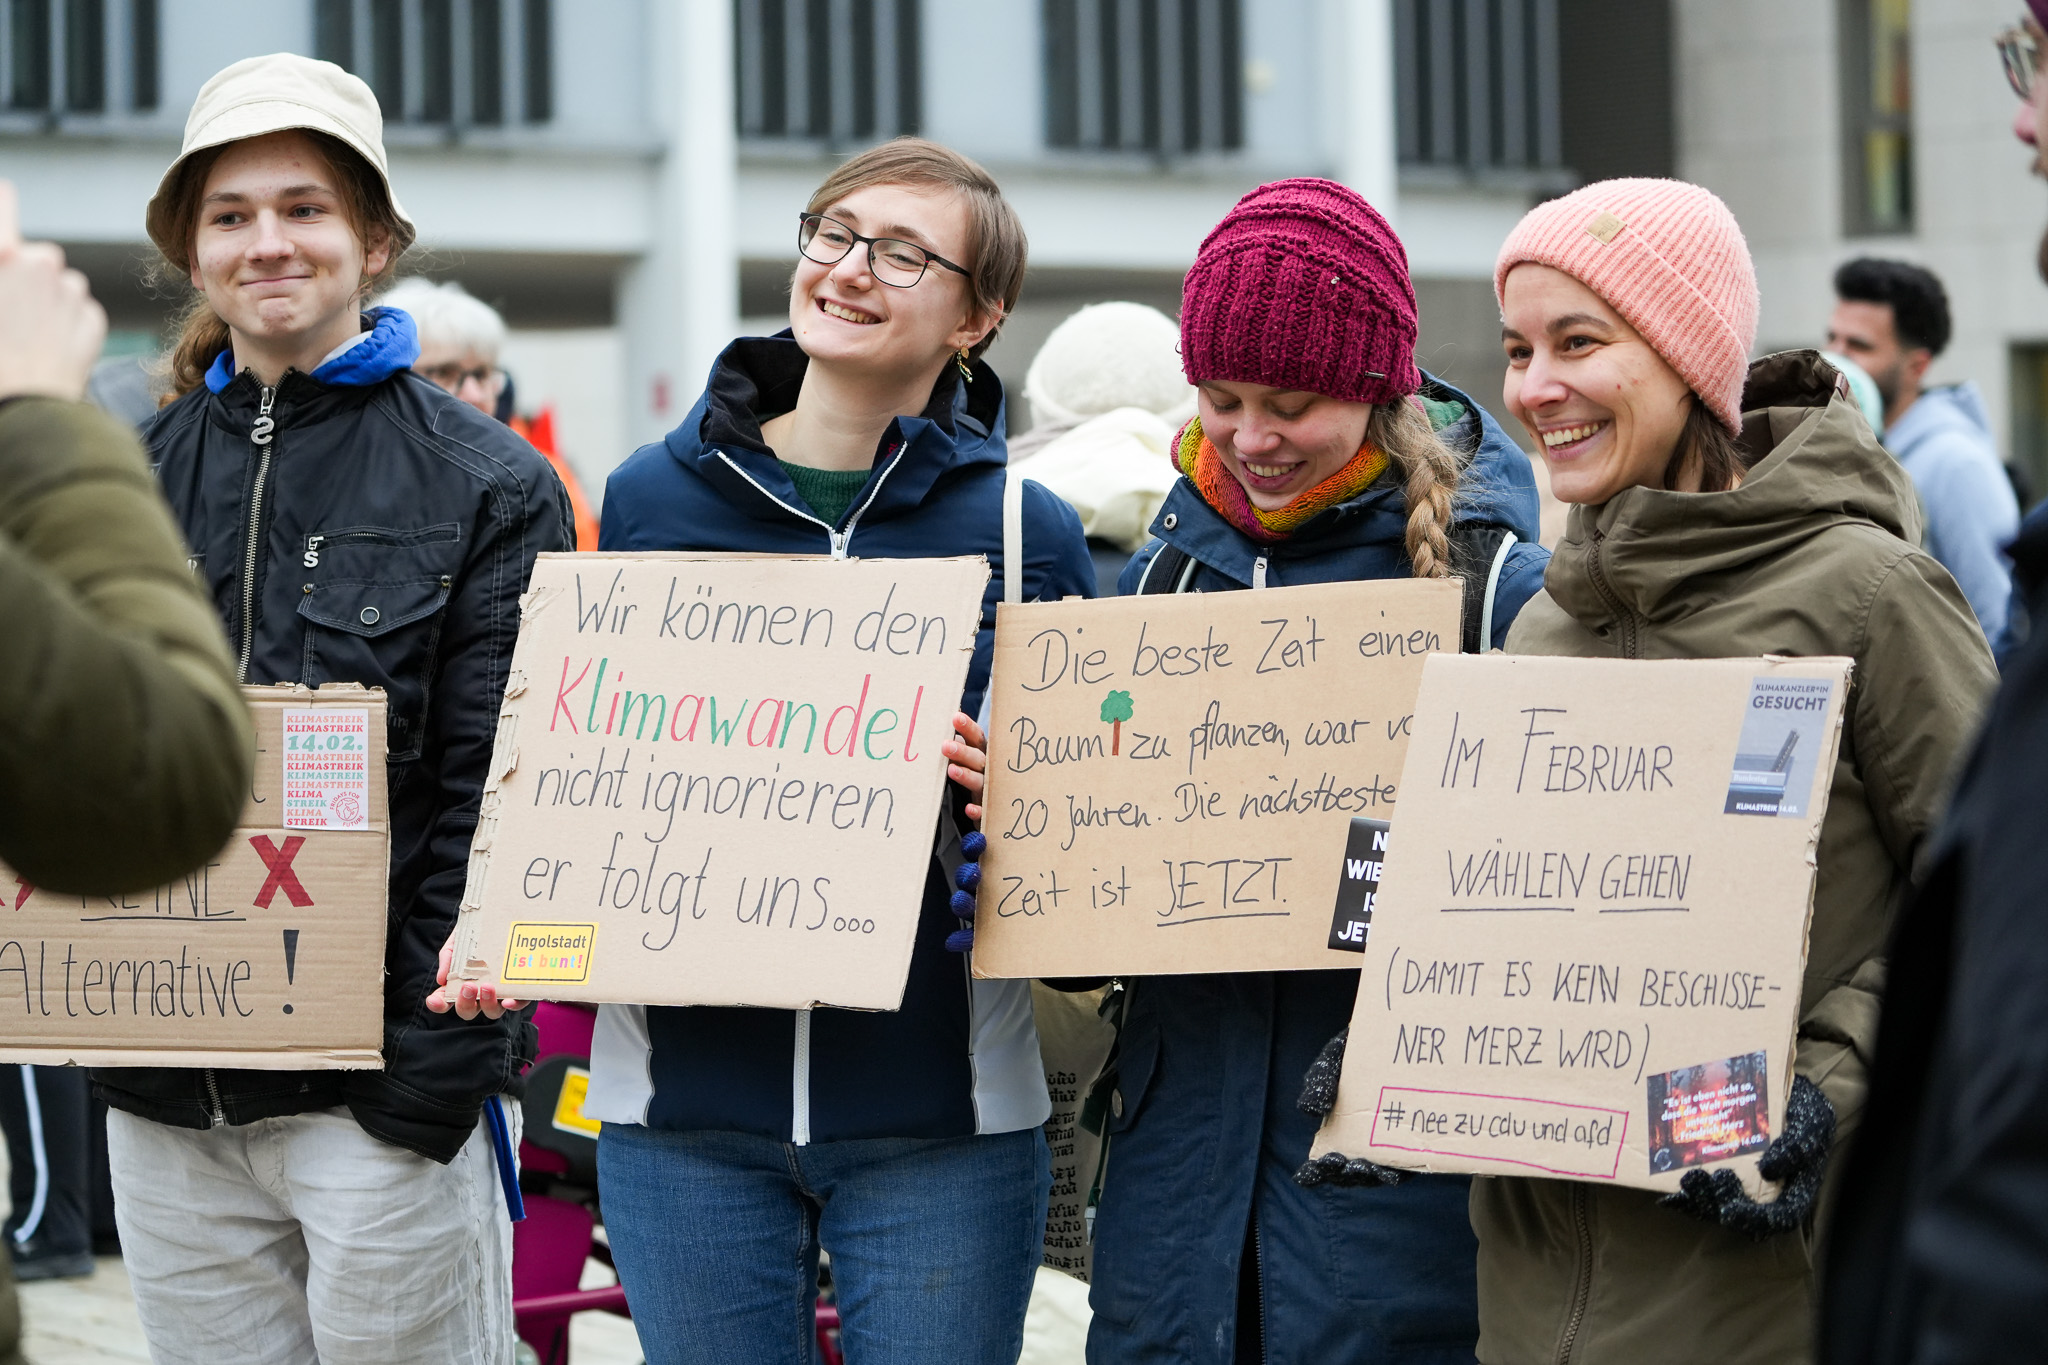 KLIMASTREIK
KLIMASTREIK
14.02.
KLIMASTREIK
KLIMASTREIK
KLIMASTREIK
KLIMASTREIK
KLIMA
STREIK
KLIMA
STREIK
FRIDAYS FOR FUTURE
KEINE
Alternative!
Wir können den
Klimawandel
nicht ignorieren,
er folgt uns...
Ingolstadt
ist bunt!
Die beste Zeit einen
Baum zu pflanzen, war
20 Jahren. Die nächstbeste
Zeit ist JETZT.
KLIMAKANZLER*IN
GESUCHT
KLIMASTREIK 14.02.
IM FEBRUAR
WÄHLEN GEHEN
(DAMIT ES KEIN BESCHISSE-
NER MERZ WIRD)
#nee zu cdu und afd
"Es ist eben nicht so,
dass die Welt morgen
untergeht"
Friedrich Merz
Klimastreik 14.02.